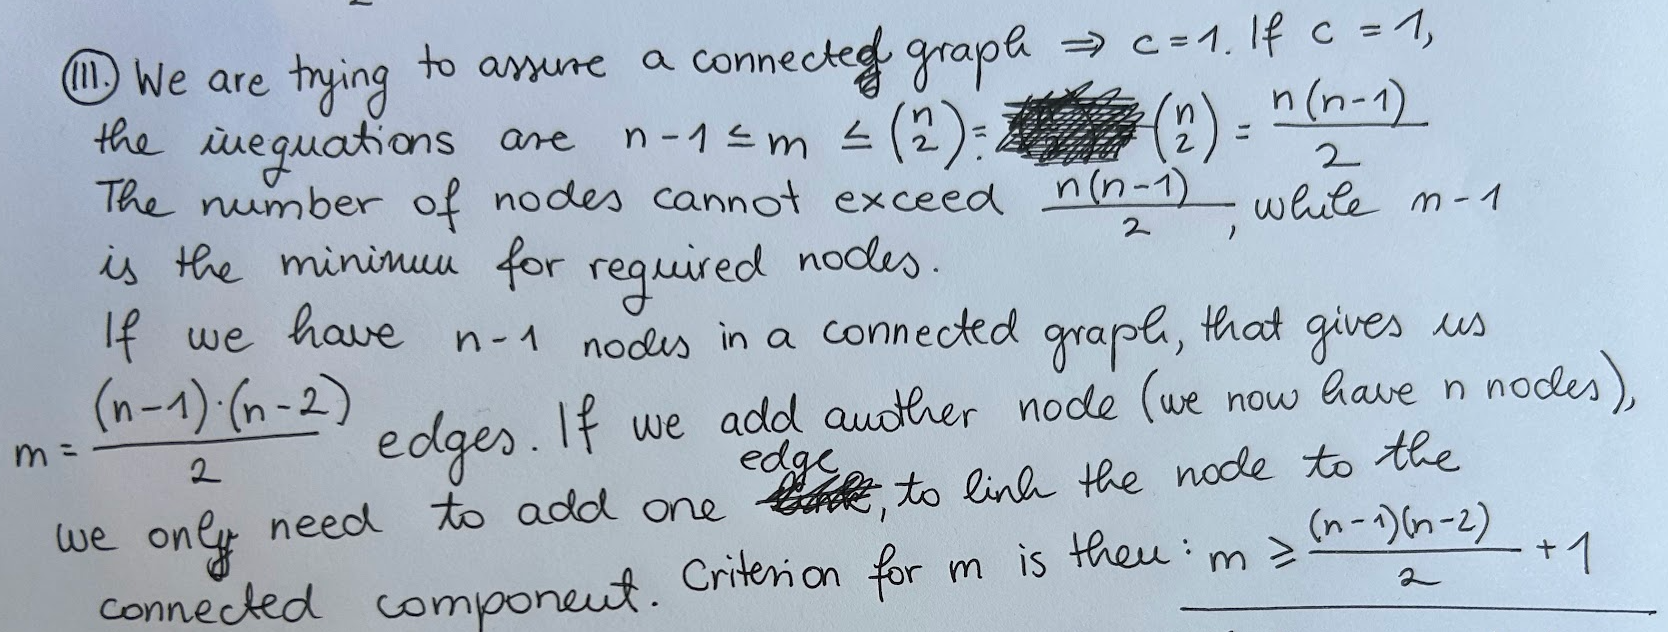 III. We are trying to assure a connected graph ⇒ c = 1. If c = 1,
the inequations are n-1 ≤ m ≤ (n 2): (n 2) = n(n-1)/2
The number of nodes cannot exceed n(n-1)/2, while n-1
is the minimum for required nodes.
If we have n-1 nodes in a connected graph, that gives us
m = (n-1)·(n-2)/2 edges. If we add another node (we now have n nodes),
we only need to add one edge, to link the node to the
connected component. Criterion for m is then: m ≥ (n-1)(n-2)/2 + 1